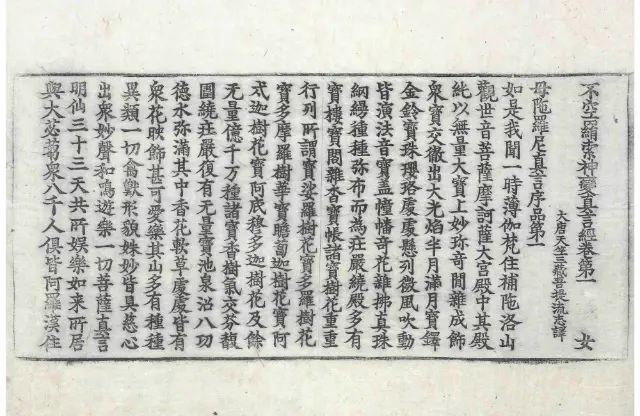 不空羂索神變真言經卷第一 女
大唐天竺三藏菩提流志譯
母陁羅尼真言序品第一
如是我聞一時薄伽梵住補陁洛山
觀世音菩薩摩訶薩大宮殿中其殿
純以無量大寶上妙珎音間雜成飾
衆寶交徹出大光焰半月滿月寶鐸
金鈴寶珠瓔珞處處懸列微風吹動
皆演法音寶盖幢幡奇花雜拂真珠
網縵種種弥布而為莊嚴繞殿多有
寶樓寶閣雜沓寶帳諸寶樹花重重
行列所謂寶娑羅樹花寶多羅樹花
寶多摩羅樹華寶瞻蔔迦樹花寶阿
戍迦樹花寶阿底穆多迦樹花及餘
无量億千万種諸寶香樹氣交芬馥
圍繞莊嚴復有无量寶池泉沼八功
德水弥滿其中香花軟草處處皆有
衆花映飾甚可愛樂其山多有種種
異類一切禽獸形貌姝妙皆具慈心
出衆妙聲和鳴遊樂一切菩薩真言
明仙三十三天共所娛樂如来所居
與大苾芻衆八千人俱皆阿羅漢住